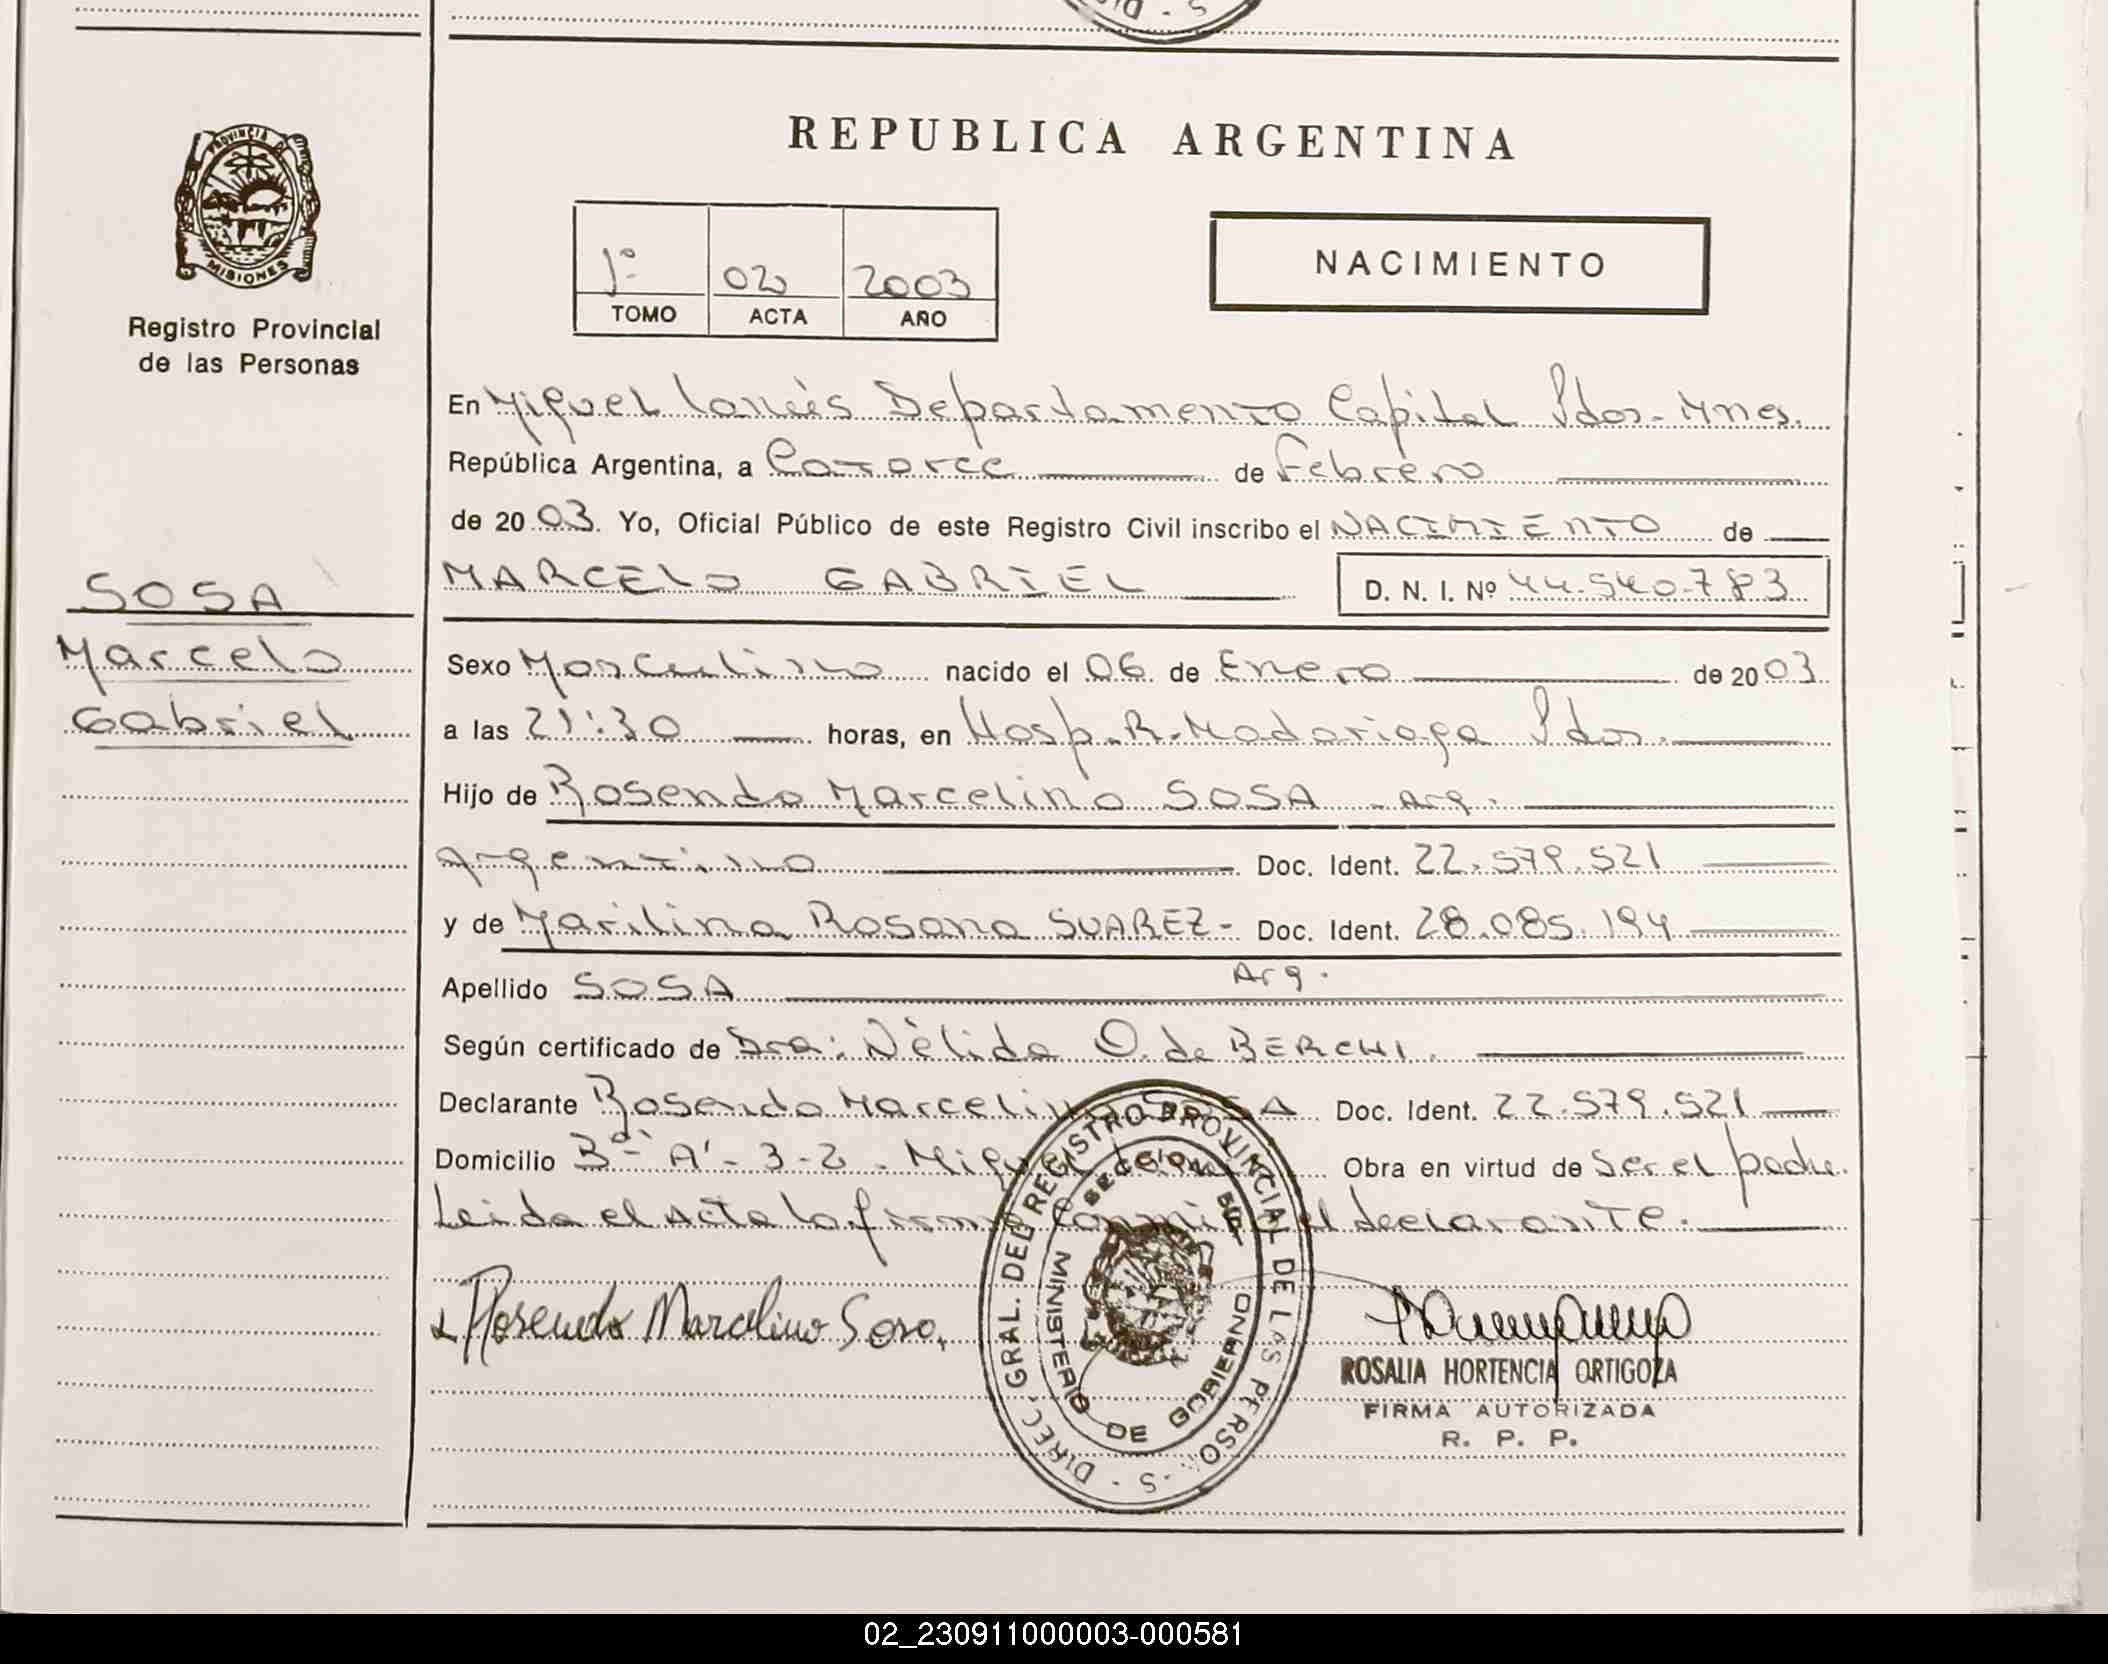 S - DI
REPUBLICA ARGENTINA
PROVINCIA DE
MISIONES
Registro Provincial
de las Personas
1º 02 2003
TOMO ACTA AÑO
NACIMIENTO
En Miguel Lanús Departamento Capital Pdos-Mnes.
República Argentina, a Catorce de Febrero
de 2003. Yo, Oficial Público de este Registro Civil inscribo el NACIMIENTO de
MARCELO GABRIEL D. N. I. Nº 44.540.783
SOSA
Marcelo
Gabriel
Sexo Masculino nacido el 06 de Enero de 2003
a las 21:30 horas, en Hosp. R. Madariaga Pdos.
Hijo de Rosendo Marcelino SOSA - Arg.
Argentino Doc. Ident. 22.579.521
y de Marilina Rosana SUAREZ - Doc. Ident. 28.085.194
Arg.
Apellido SOSA
Según certificado de Dra: Nélida O. de BERCHI.
Declarante Rosendo Marcelino SOSA Doc. Ident. 22.579.521
Domicilio Bº "A" - 3-2 - Miguel Obra en virtud de Ser el padre.
Leida el Acta la firma Conmigo el declarante.
Rosendo Marcelino Sosa.
DIREC. GRAL. DEL REGISTRO PROVINCIAL DE LAS PERSONAS -
MINISTERIO DE GOBIERNO
ROSALIA HORTENCIA ORTIGOZA
FIRMA AUTORIZADA
R. P. P.
02_230911000003-000581